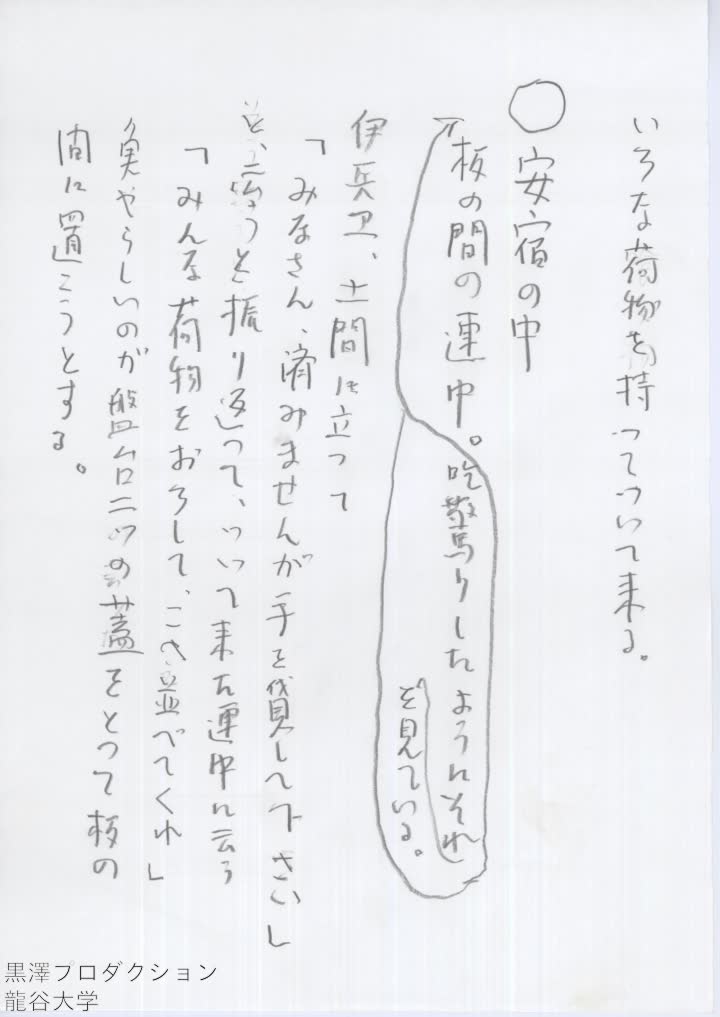 いろな荷物を持ってついて来る。
○安宿の中
板の間の連中。吃驚りしたようにそれ
を見ている。
伊兵卫、土間に立って
「みなさん、済みませんが手を貸して下さい」
と、云うと振り返って、ついて来た連中に云う
「みんな荷物をおろして、こゝへ並べてくれ」
魚やらしいのが盤台二ツの蓋をとって板の
間に置こうとする。
黒澤プロダクション
龍谷大学